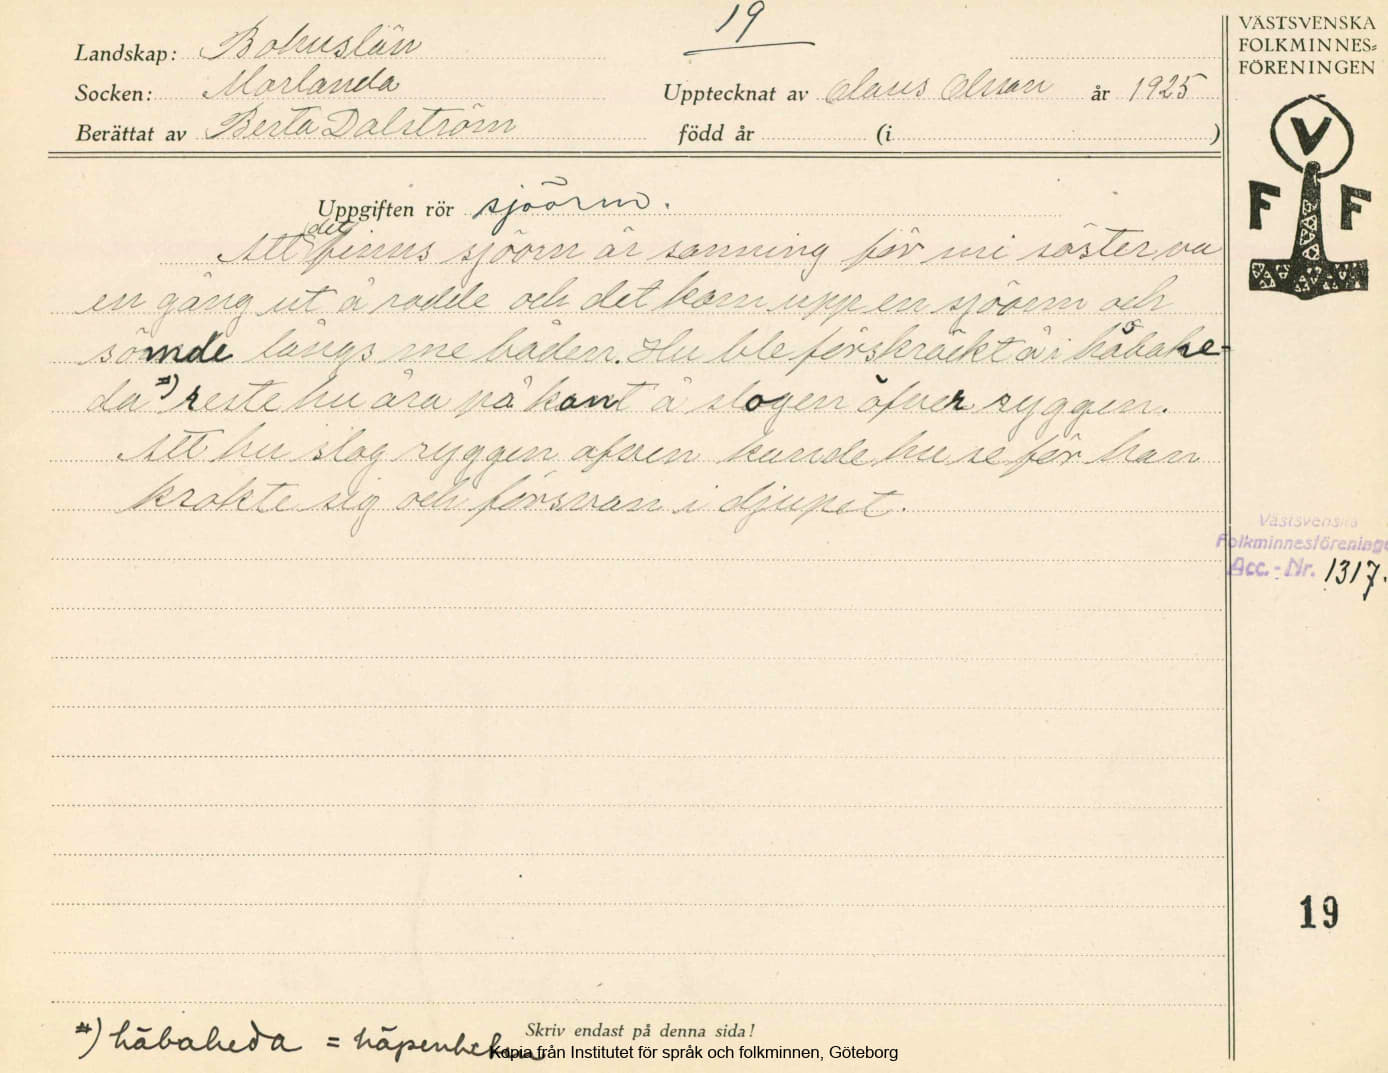 19
Landskap: Bohuslän
Socken: Morlanda Upptecknat av Olaus Olsson år 1925
Berättat av Berta Dalström född år (i )
VÄSTSVENSKA
FOLKMINNES-
FÖRENINGEN
V
F F
Uppgiften rör sjöorm.
Att det finns sjöorm är sanning för mi söster va
en gång ut å rodde och det kom upp en sjöorm och
sömde längs me båden. Hu ble förskräckt å i håbahe-
da *) reste hu åra på kant å slogen öfver ryggen.
Att hu slog ryggen afven kunde hu se för han
krokte sig och försvan i djupet.
Västsvenska
Folkminnesföreninge
Acc.-Nr. 1317.
19
*) håbaheda = häpenheten
Skriv endast på denna sida!
Kopia från Institutet för språk och folkminnen, Göteborg